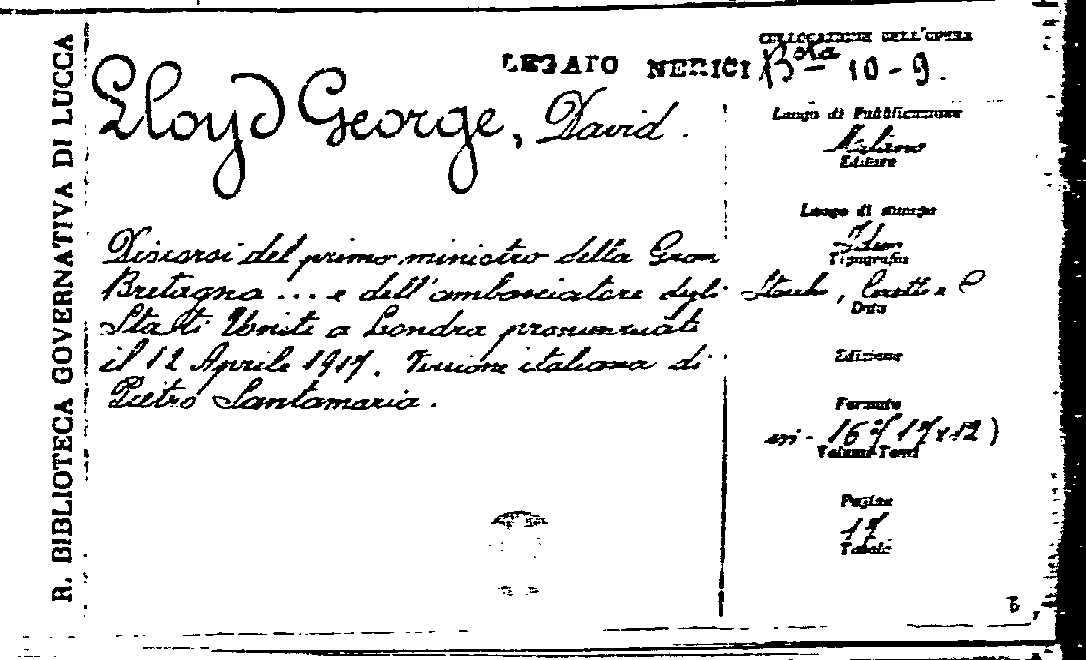 R. BIBLIOTECA GOVERNATIVA DI LUCCA
LEGATO NERICI
COLLOCAZIONE DELL'OPERA
Bta 10-9.
Lloyd George, David.
Discorsi del primo ministro della Gran
Bretagna ... e dell'ambasciatore degli
Stati Uniti a Londra pronunciati
il 12 Aprile 1917. Versione italiana di
Pietro Santamaria.
Luogo di Pubblicazione
Milano
Editore
Luogo di stampa
Idem
Tipografia
Data
Edizione
Formato
in-16°(17x12)
Volumi-Tomi
Pagine
17
Tavole